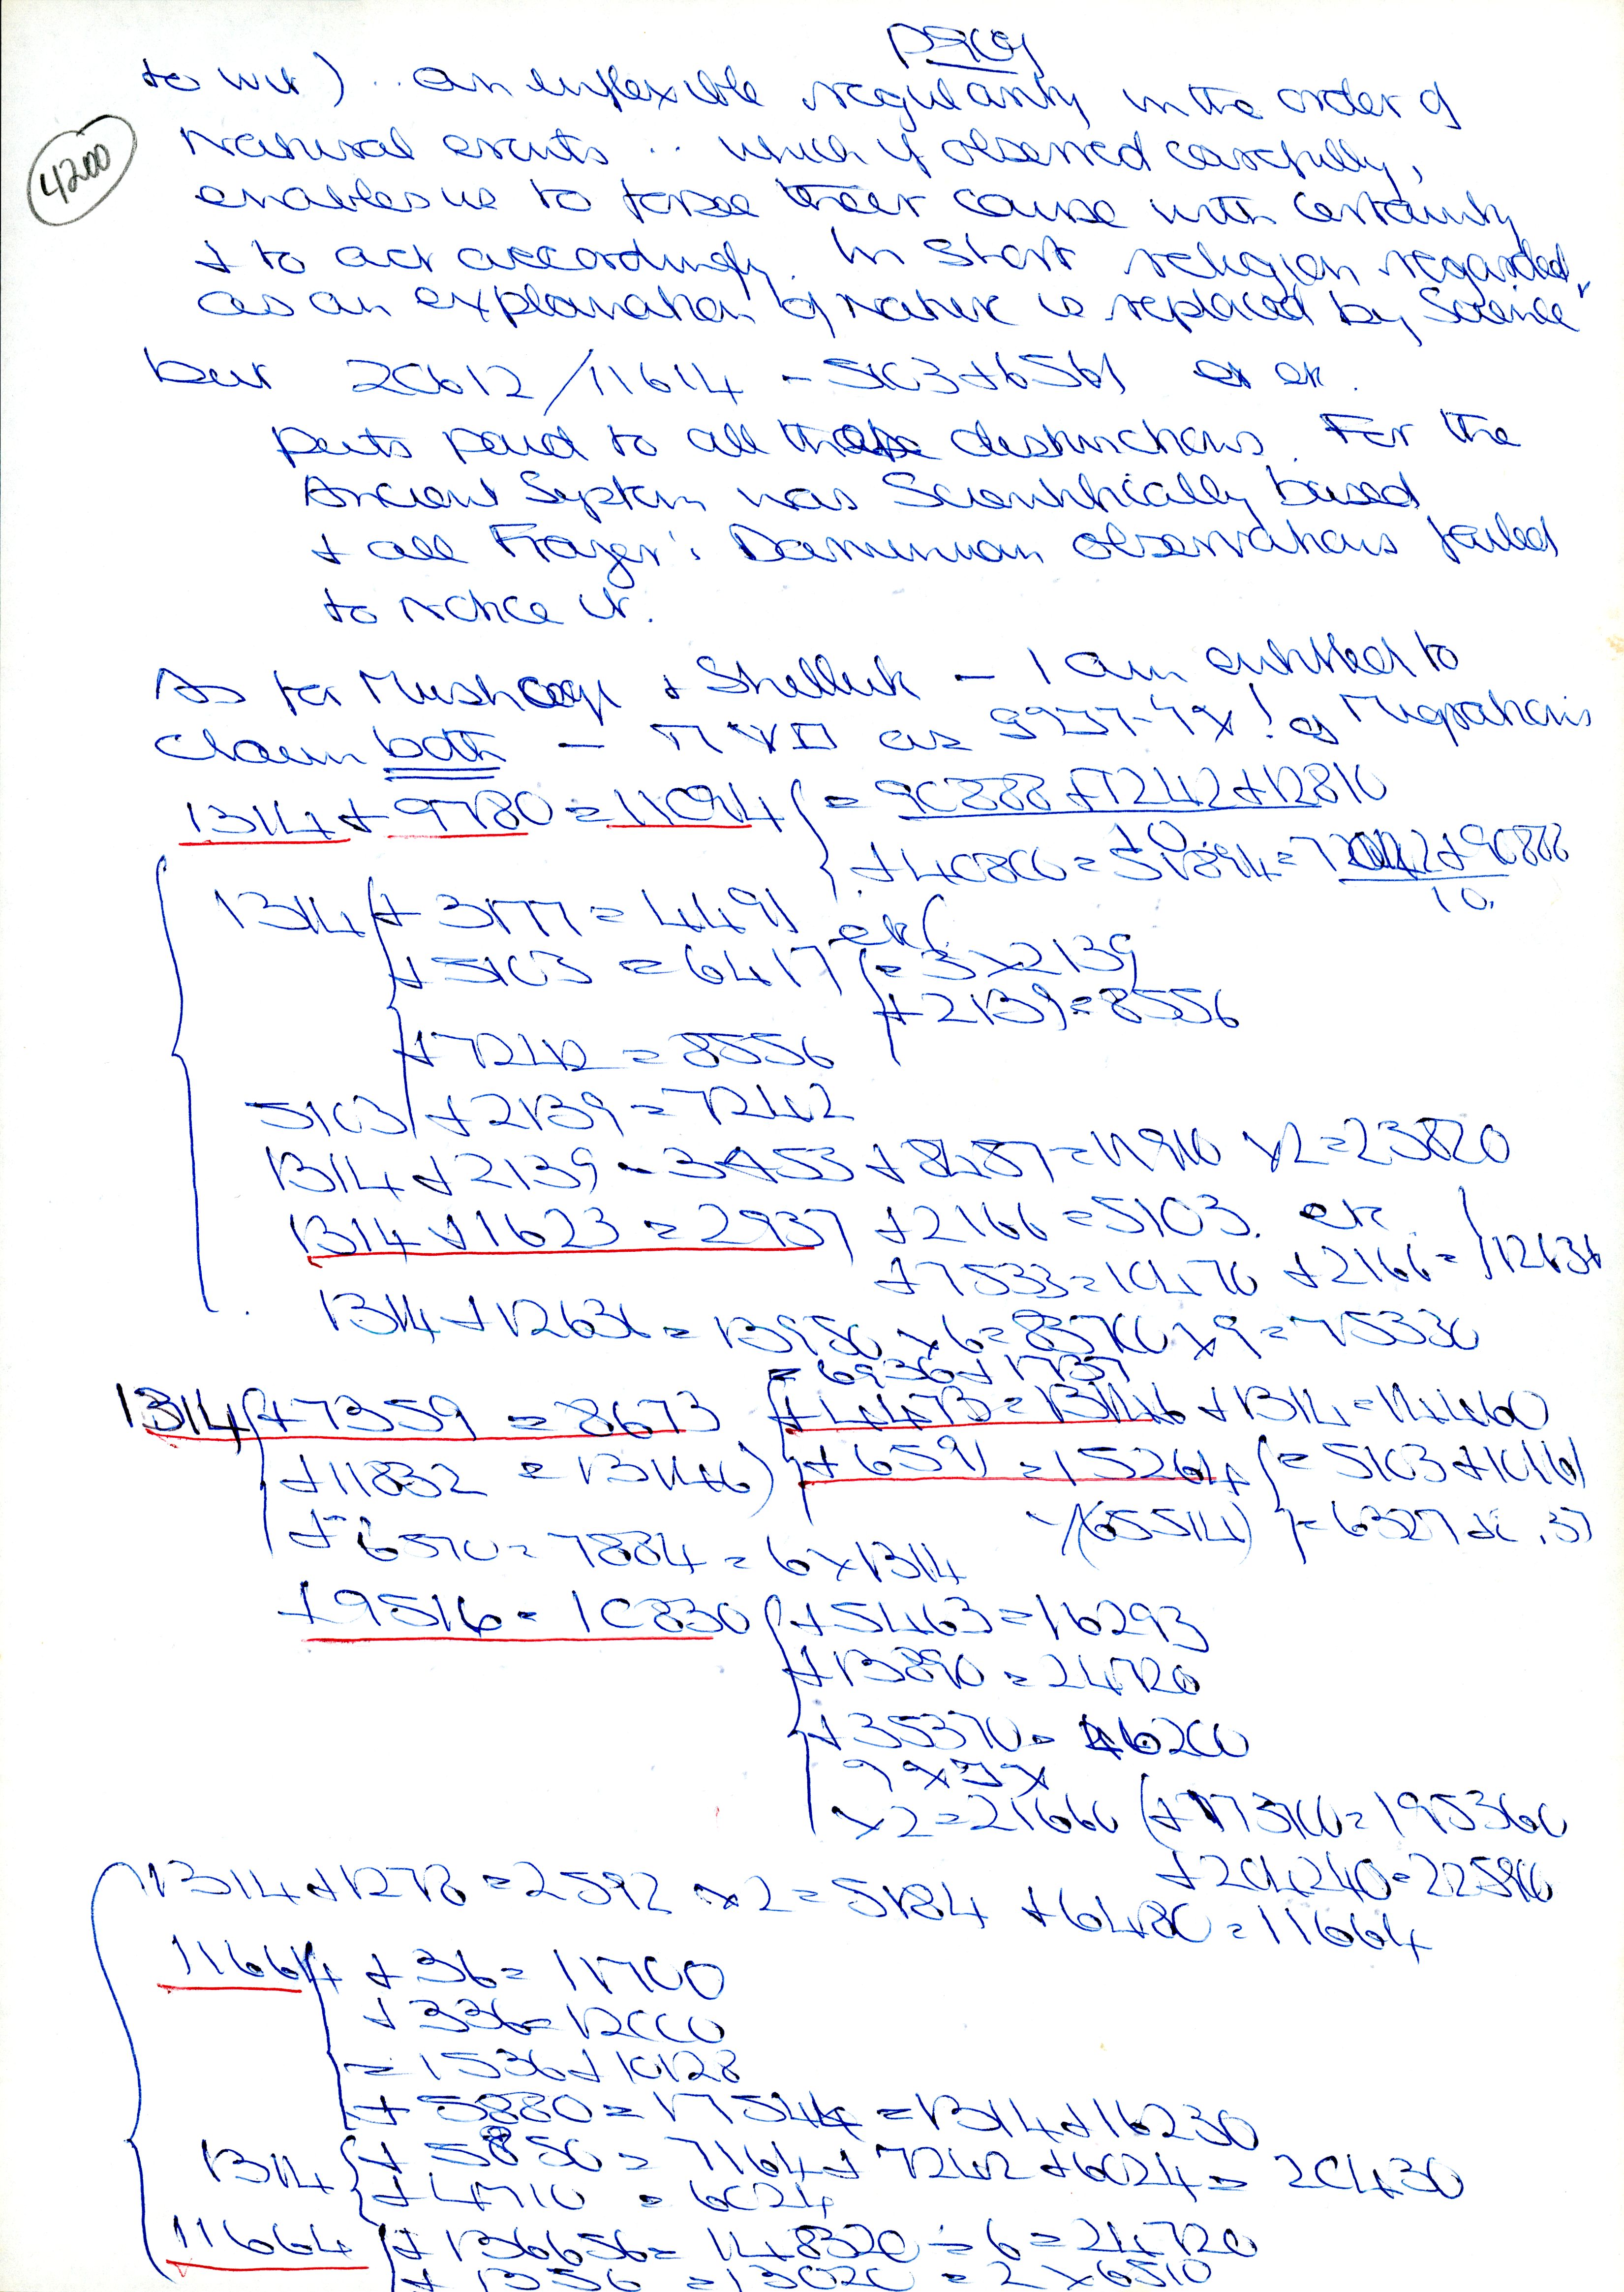 to wit) .. an inflexible regularity in the order of
4200
Natural events .. which if observed carefully,
enables us to forsee their cause with certainty
+ to act accordingly. In short religion regarded,
as an explanation of Nature is replaced by Science"
but 20612/11614 - 5103+6561
puts paid to all those distinctions. For the
Ancient System was Scientifically based
+ all Frazer's Darwinian observations failed
to notice it.
As for + Shelluk - I am entitled to
claim both - as of Migrations
1314 + 9780 = 11094 { = 90888 + 7242 + 12810
10
+ 40800 = 51894 =
10.
1314 { + 3177 = 4491 etc
+ 5103 = 6417 { = 3 x 2139
+ 2139 = 8556
+ 7242 = 8556
5103 + 2139 = 7242
1314 + 2139 = 3453 + 8457 = 11910 x2 = 23820
1314 + 1623 = 2937 + 2166 = 5103. etc
+ 7533 = 10470 + 2166 = 12636
1314 + 12636 = 13950 x6 = 83700 x9 = 75330
= 6936 + 1737
1314 { + 7359 = 8673 { + 4473 = 13146 + 1314 = 14460
+ 11832 = 13146) + 6591 = 15264 { = 5103 + 10161
(65514) = 6327
+ 6570 = 7884 = 6 x 1314
+ 9516 = 10830 { + 5463 = 16293
+ 13890 = 24720
+ 35370 = 46200
x2 = 21660 (+ 173700 = 195360
+ 204240 = 225900
1314 + 1278 = 2592 x2 = 5184 + 6480 = 11664
11664 { + 36 = 11700
+ 336 = 12000
= 1536 + 10128
+ 5880 = 17544 = 1314 + 16230
1314 { + 5850 = 7164 + 7242 + 6024 = 20430
+ 4710 = 6024
11664 { + 136656 = 148320 ÷ 6 = 24720
+ 1356 = 13020 = 2 x 6510